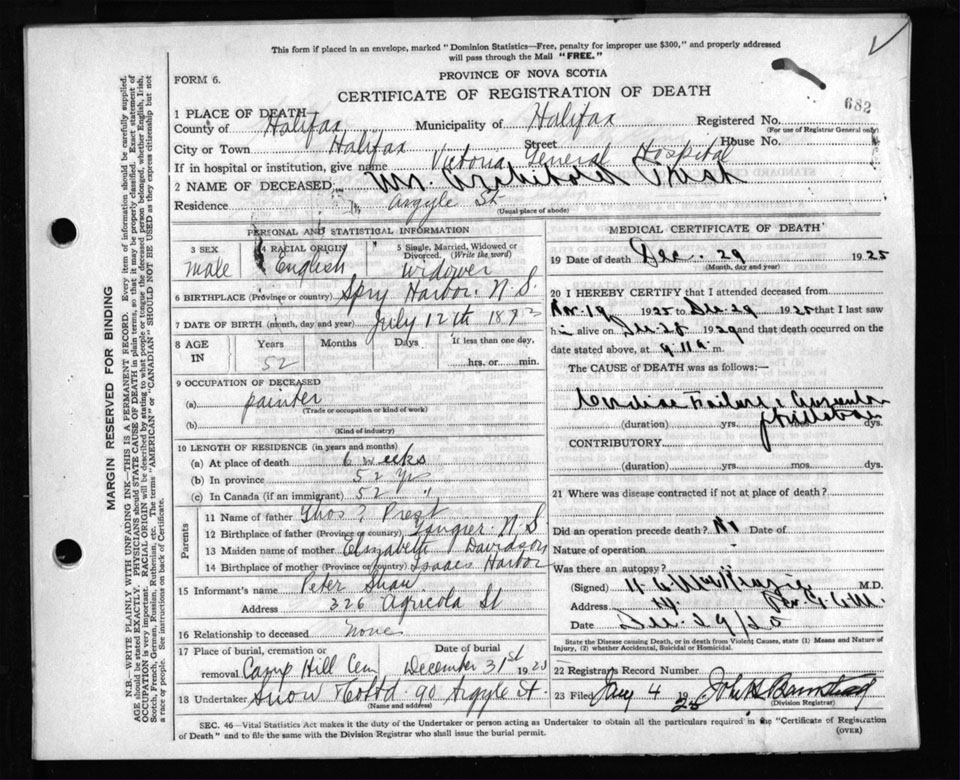 This form if placed in an envelope, marked "Dominion Statistics—Free, penalty for improper use $300," and properly addressed
will pass through the Mail "FREE."
FORM 6.
PROVINCE OF NOVA SCOTIA
CERTIFICATE OF REGISTRATION OF DEATH
682
1 PLACE OF DEATH
County of Halifax Municipality of Halifax Registered No.
(For use of Registrar General only)
City or Town Halifax Street House No.
If in hospital or institution, give name Victoria General Hospital
2 NAME OF DECEASED Archibald Prest
Residence Argyle St
(Usual place of abode)
PERSONAL AND STATISTICAL INFORMATION
3 SEX male
4 RACIAL ORIGIN English
5 Single, Married, Widowed or Divorced. (Write the word) widower
6 BIRTHPLACE (Province or country) Spry Harbor. N.S.
7 DATE OF BIRTH (month, day and year) July 12th 1873
8 AGE IN Years 52 Months Days If less than one day, hrs. or min.
9 OCCUPATION OF DECEASED
(a) painter
(Trade or occupation or kind of work)
(b)
(Kind of industry)
10 LENGTH OF RESIDENCE (in years and months)
(a) At place of death 6 weeks
(b) In province 52 yr
(c) In Canada (if an immigrant) 52 "
Parents
11 Name of father Thos ? Prest
12 Birthplace of father (Province or country) Tangier. N S
13 Maiden name of mother Elizabeth Davidson
14 Birthplace of mother (Province or country) Isaacs Harbor
15 Informant's name Peter Shaw
Address 326 Agricola St
16 Relationship to deceased none
17 Place of burial, cremation or removal Camp Hill Cem
Date of burial December 31st 1925
18 Undertaker Snow & Co Ltd 90 Argyle St.
(Name and address)
MEDICAL CERTIFICATE OF DEATH
19 Date of death Dec. 29 1925
(Month, day and year)
20 I HEREBY CERTIFY that I attended deceased from
Nov. 19 1925 to Dec 29 1925 that I last saw
h alive on Dec 28 1929 and that death occurred on the
date stated above, at m.
The CAUSE of DEATH was as follows:—
Cardiac Failure
(duration) yrs. dys.
CONTRIBUTORY
(duration) yrs. mos. dys.
21 Where was disease contracted if not at place of death?
Did an operation precede death? No Date of
Nature of operation
Was there an autopsy?
(Signed) M.D.
Address
Date Dec. 29/25
State the Disease causing Death, or in death from Violent Causes, state (1) Means and Nature of
Injury, (2) whether Accidental, Suicidal or Homicidal.
22 Registrars Record Number
23 Filed Jany 4 19
(Division Registrar)
SEC. 46—Vital Statistics Act makes it the duty of the Undertaker or person acting as Undertaker to obtain all the particulars required in the "Certificate of Registration
of Death" and to file the same with the Division Registrar who shall issue the burial permit.
(OVER)
MARGIN RESERVED FOR BINDING
N.B.—WRITE PLAINLY WITH UNFADING INK—THIS IS A PERMANENT RECORD. Every item of information should be carefully supplied.
AGE should be stated EXACTLY. PHYSICIANS should STATE CAUSE OF DEATH in plain terms, so that it may be properly classified. Exact statement of
OCCUPATION is very important. RACIAL ORIGIN will be described by stating to what people or tongue the deceased person belonged, whether English, Irish,
Scotch, French, German, Russian, Ruthenian, etc. The terms "AMERICAN" or "CANADIAN" SHOULD NOT BE USED as they express citizenship but not
a race or people. See instructions on back of Certificate.